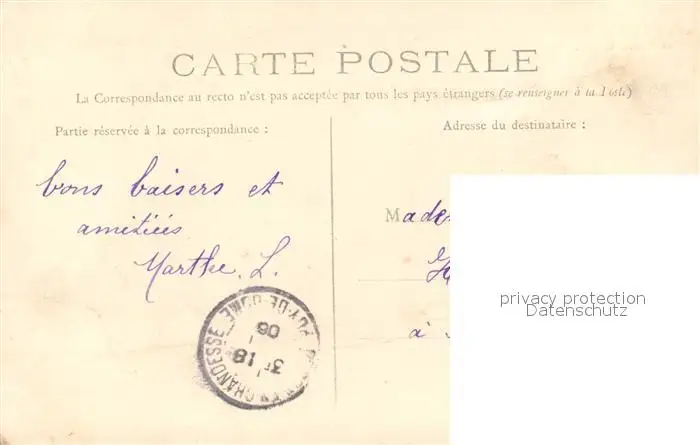 CARTE POSTALE
La Correspondance au recto n'est pas acceptée par tous les pays étrangers (se renseigner à la Poste)
Partie réservée à la correspondance :
Adresse du destinataire :
bons baisers et
amitiés
Marthe. L.
Made
à
PUY-DE-DOME
06
18
3E
privacy protection
Datenschutz